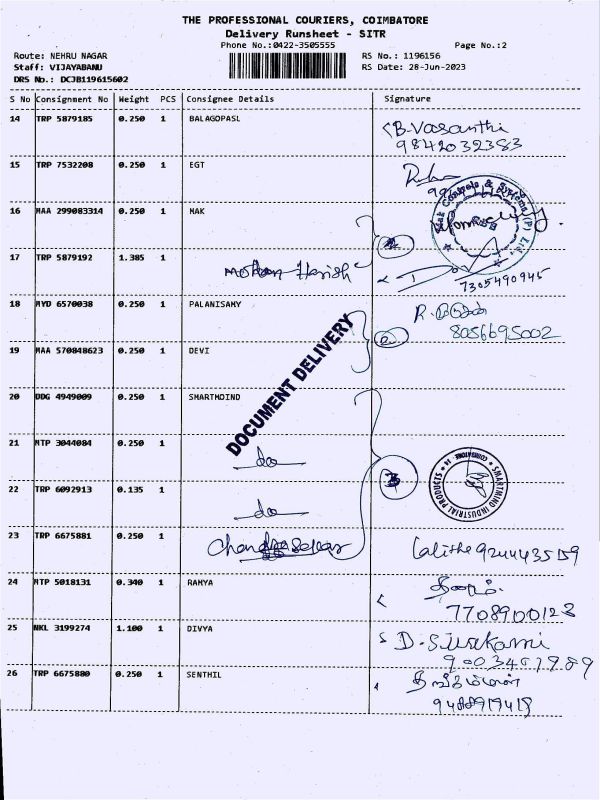 THE PROFESSIONAL COURIERS, COIMBATORE
Delivery Runsheet - SITR
Phone No.:0422-3505555 Page No.:2
Route: NEHRU NAGAR RS No.: 1196156
Staff: VIJAYABANU RS Date: 28-Jun-2023
DRS No.: DCJB119615602
S No Consignment No Weight PCS Consignee Details Signature
14 TRP 5879185 0.250 1 BALAGOPASL B.Vasanthi
9842032383
15 TRP 7532208 0.250 1 EGT
16 MAA 299083314 0.250 1 MAK
17 TRP 5879192 1.385 1 Mohan Harish
7305490945
18 MYD 6570038 0.250 1 PALANISAMY R.
8056695002
19 MAA 570848623 0.250 1 DEVI
DOCUMENT DELIVERY
20 DDG 4949009 0.250 1 SMARTMOIND
21 MTP 3044084 0.250 1 do
3
SMARTMIND INDUSTRIAL PRODUCTS
22 TRP 6092913 0.135 1 do
23 TRP 6675881 0.250 1
24 MTP 5018131 0.340 1 RAMYA
7708900123
25 NKL 3199274 1.100 1 DIVYA
26 TRP 6675880 0.250 1 SENTHIL